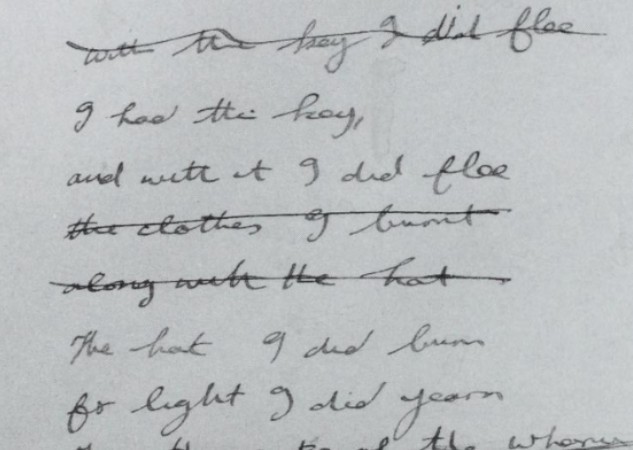 with the key I did flee
I had the key,
and with it I did flee
the clothes I burnt
along with the hat
The hat I did burn
for light I did yearn
the